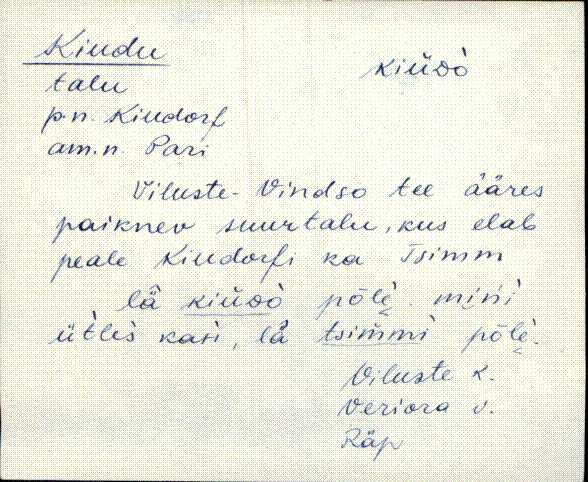 Kindu
kiùᴅò
talu
p.n. Kindorf
am.n. Pari
Viluste-Vindso tee ääres
paiknev suurtalu, kus elab
peale Kindorfi ka Tsimm
lǟ kiùᴅò põlè. mińi
ütles kaśi, lǟ tsim̀mì põlè.
Viluste k.
Veriora v.
Räp